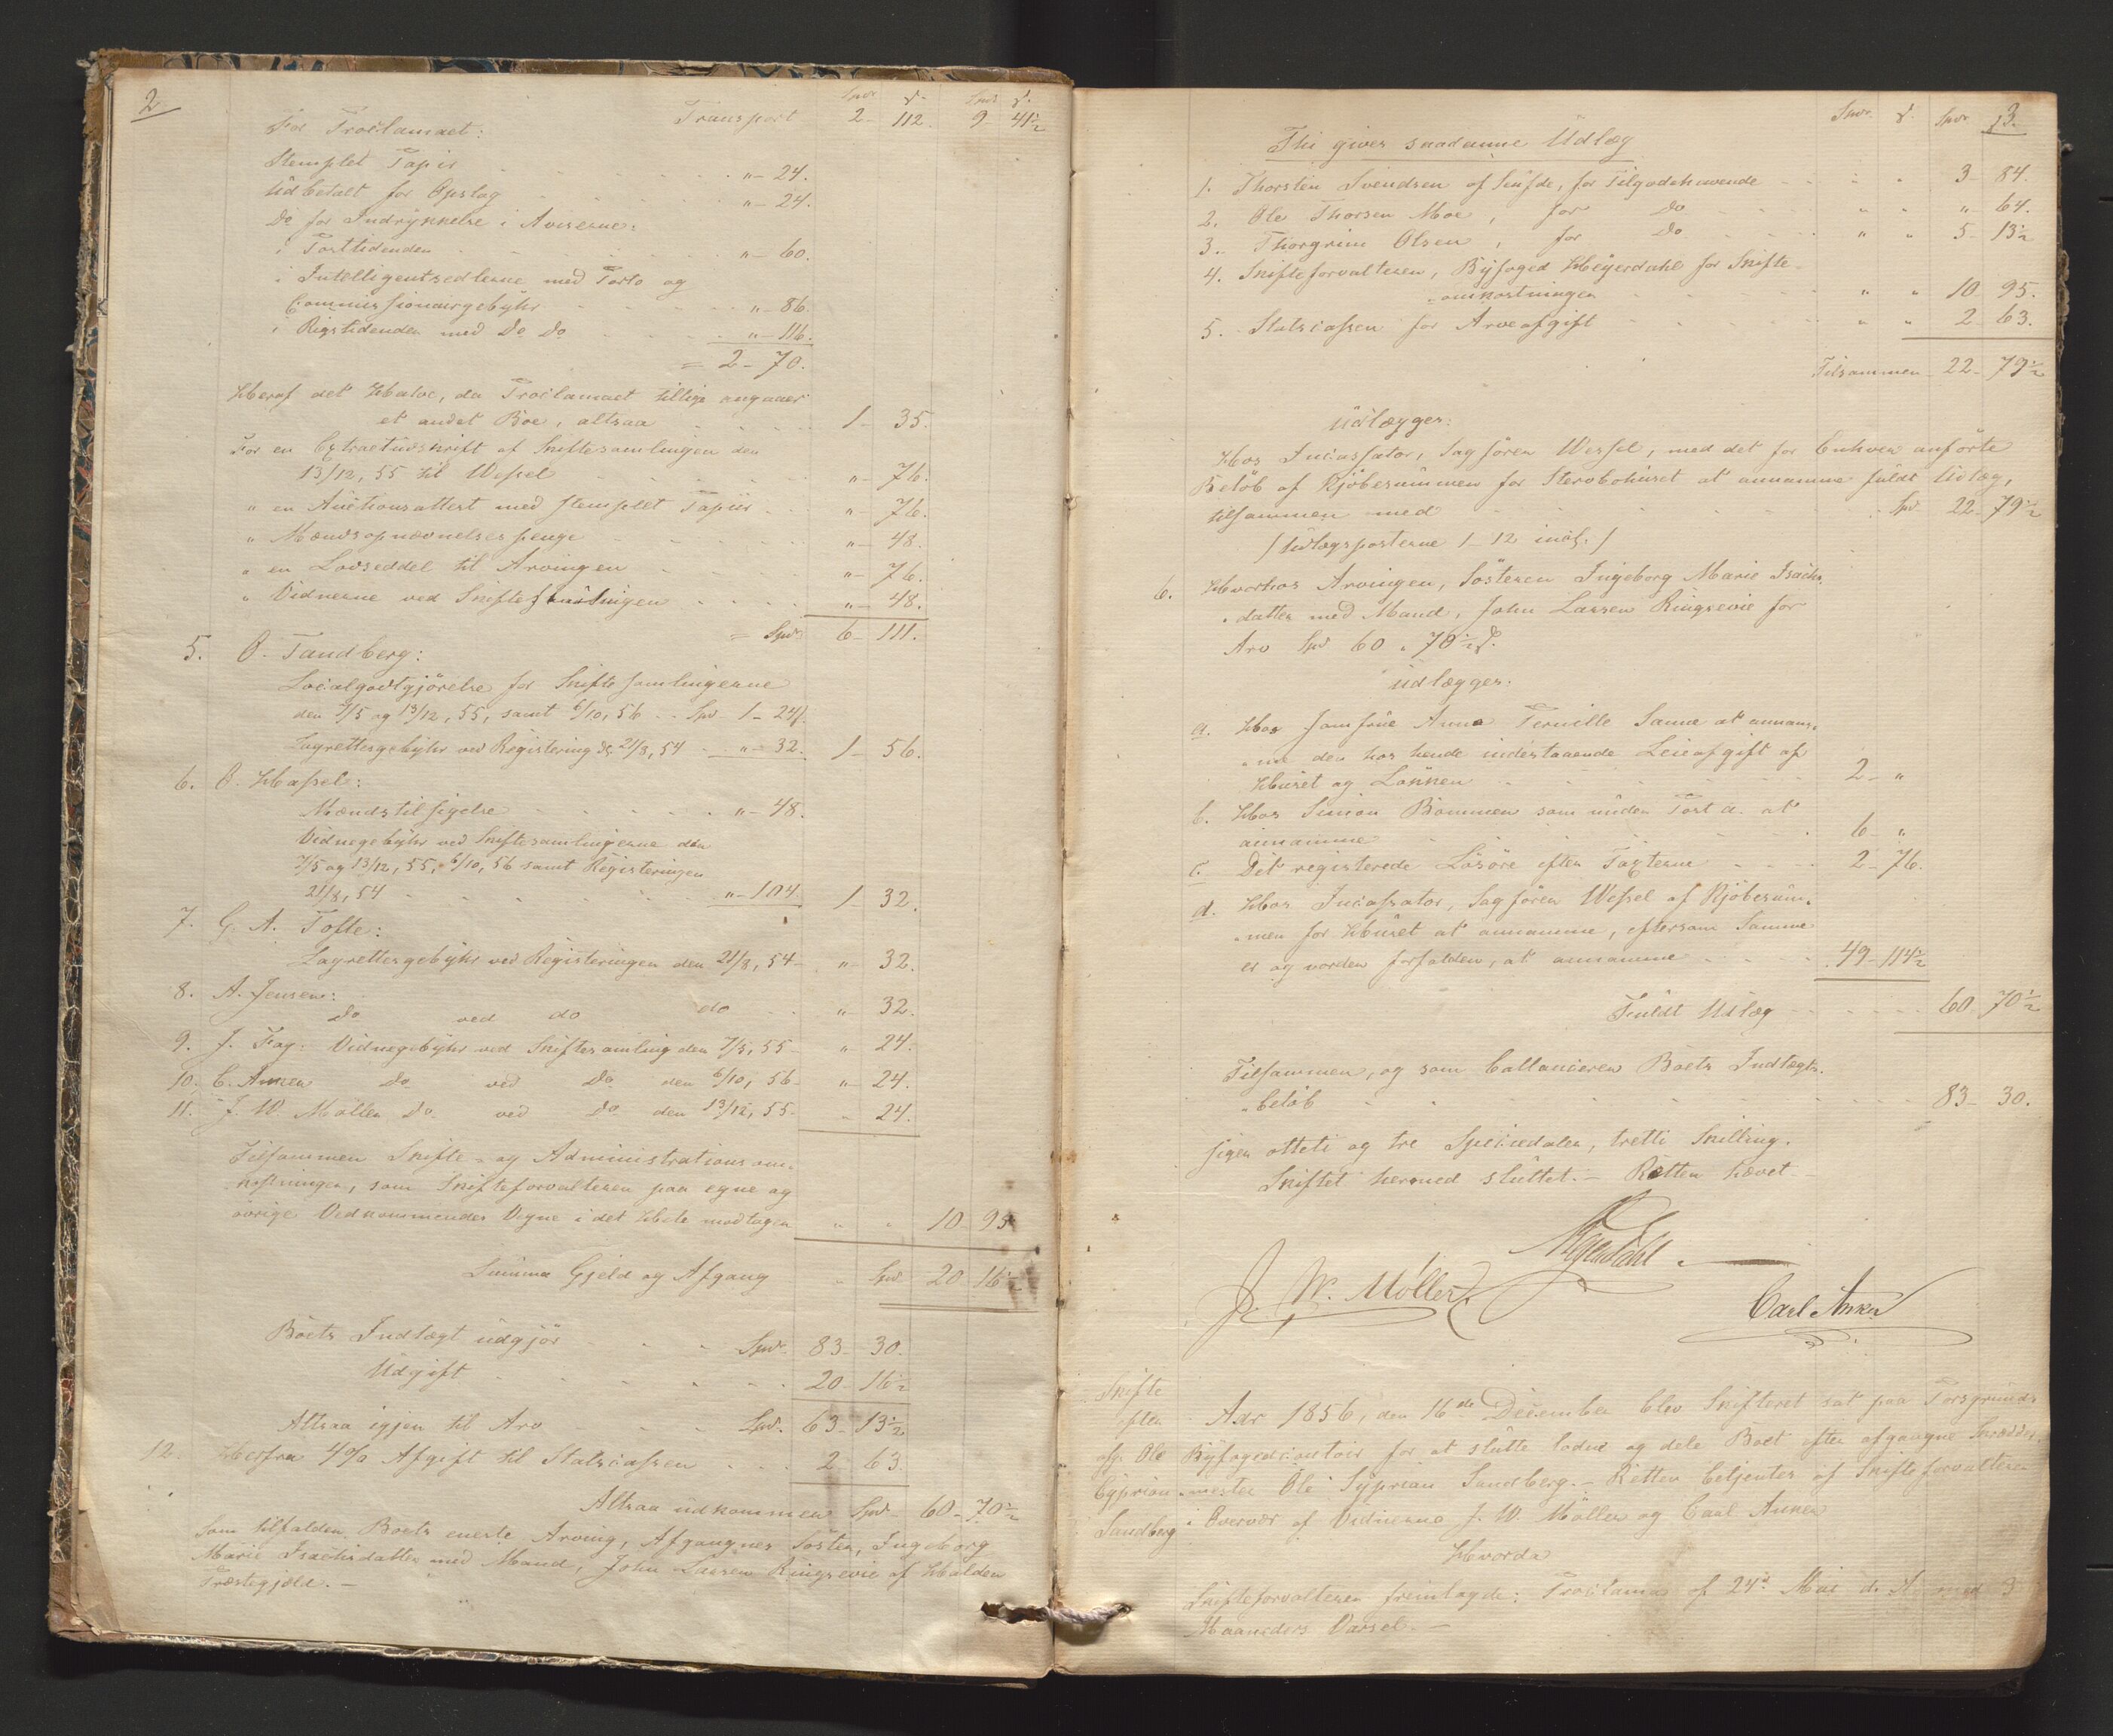 2
Spdr ß. Spdr ß.
Transport 2- 112. 9- 41½
For Proclamaet:
Stemplet Papir "- 24.
Udbetalt for Opslag "- 24.
Do for Indrykkelse i Aviserne:
i Posttidenden "- 60.
i Intelligentsedlerne med Porto og
Commissionairgebyhr "- 86.
i Rigstidenden med Do Do "- 116.
= 2- 70.
Heraf det Halve, da Proclamaet tillige angaaer
et andet Boe, altsaa 1- 35.
For en Extractudskrift af Skiftesamlingen den
13/12, 55 til Wessel "- 76.
" en Auctionsattest med stemplet Papiir "- 76.
" Mændsopnævnelsespenge "- 48.
" en Lodseddel til Arvingen "- 76.
" Vidnerne ved Skifteslutningen "- 48.
= Spdr 6- 111.
5. O. Tandberg:
Localgodtgjörelse for Skiftesamlingerne
den 7/5 og 13/12, 55, samt 6/10, 56 Spdr 1- 24.
Lagrettesgebyhr ved Registering d. 21/8, 54 "- 32. 1- 56.
6. O. Hassel:
Mændstilsigelse "- 48.
Vidnegebyhr ved Skiftesamlingerne den
7/5 og 13/12, 55, 6/10, 56 samt Registeringen
21/8, 54 "- 104. 1- 32.
7. G. A. Tofte:
Lagrettesgebyhr ved Registeringen den 21/8, 54- "- 32.
8. A. Jensen:
Do ved do do "- 32.
9. J. Fag: Vidnegebyhr ved Skiftesamling den 7/5, 55- " 24.
10. C. Anker Do ved Do den 6/10, 56- "- 24.
11. J. W. Möller Do ved Do den 13/12, 55- - 24.
Tilsammen Skifte- og Administrationsom-
kostninger, som Skifteforvalteren paa egne og
øvrige Vedkommendes Vegne i det Hele modtager " " 10- 95
Summa Gjeld og Afgang " Spdr 20- 16½
Boets Indtægt udgjör Spdr. 83- 30.
Udgift 20- 16½
Altsaa igjen til Arv Spdr. 63- 13½
12. Herfra 4% Afgift til Statscassen 2- 63.
Altsaa udkommer Spdr- 60- 70½
som tilfalder Boets eneste Arving, Afgangnes Söster, Ingeborg
Marie Isachsdatter med Mand, John Larsen Ringsevie af Halden
Præstegjeld.-
3.
Spdr. ß. Spdr. ß.
Thi gives saadanne Udlæg
1. Thorsten Svendsen af , for Tilgodehavende " " 3- 84.
2. Ole Thorsen Moe, for Do " " " 64.
3. Thorgrim Olsen, for Do " " 5- 13½
4. Skifteforvalteren, Byfoged Heyerdahl for Skifte-
omkostninger " " 10- 95.
5. Statscassen for Arveafgift " " 2- 63.
Tilsammen 22- 79½
udlægges:
Hos Incassator, Sagförer Wessel, med det for Enhver anförte
Belöb af Kjöbesummen for Stervbohuset at annamme fuldt Udlæg,
tilsammen med Spd 22- 79½
/Udlægsposterne 1-12 incl:/
6. Hvorhos Arvingen, Sösteren Ingeborg Marie Isachs-
datter med Mand, John Larsen Ringsevie for
Arv Spd 60 " 70½ ß.
udlægges.
a. Hos Jomfrue Anna Pernille Sanne at annam-
me den hos hende indestaaende Leieafgift af
Huset og Løkken 2- "
b. Hos Simon Bommen som under Post a. at
annamme 6- "
c. Det registerede Lösöre efter Taxterne 2- 76.
d. Hos Incassator, Sagförer Wessel af Kjöbesum-
men for Huset at annamme, eftersom Samme
er og vorder forfalden, at annamme 49- 114½
Fuldt Udlæg 60 70½
Tilsammen, og som ballancerer Boets Indtægts-
belöb 83- 30.
siger otteti og tre Speciedaler, tretti Skilling.
Skiftet hermed sluttet.- Retten hævet-
Heyerdahl.
J. W. Möller
Carl Anker
Skifte
efter
afg. Ole
Cyprian
Sandberg
Aar 1856, den 16de December blev Skifteret sat paa Porsgrunds
Byfogedcontoir for at slutte lodne og dele Boet efter afgangne Skrædder-
mester Ole Syprian Sandberg.- Retten betjentes af Skifteforvalteren
i Overvær af Vidnerne J. W. Möller og Carl Anker
Hvorda
Skifteforvalteren fremlagde: Proclama af 24de Mai d. A. med 3
Maaneders Varsel.-